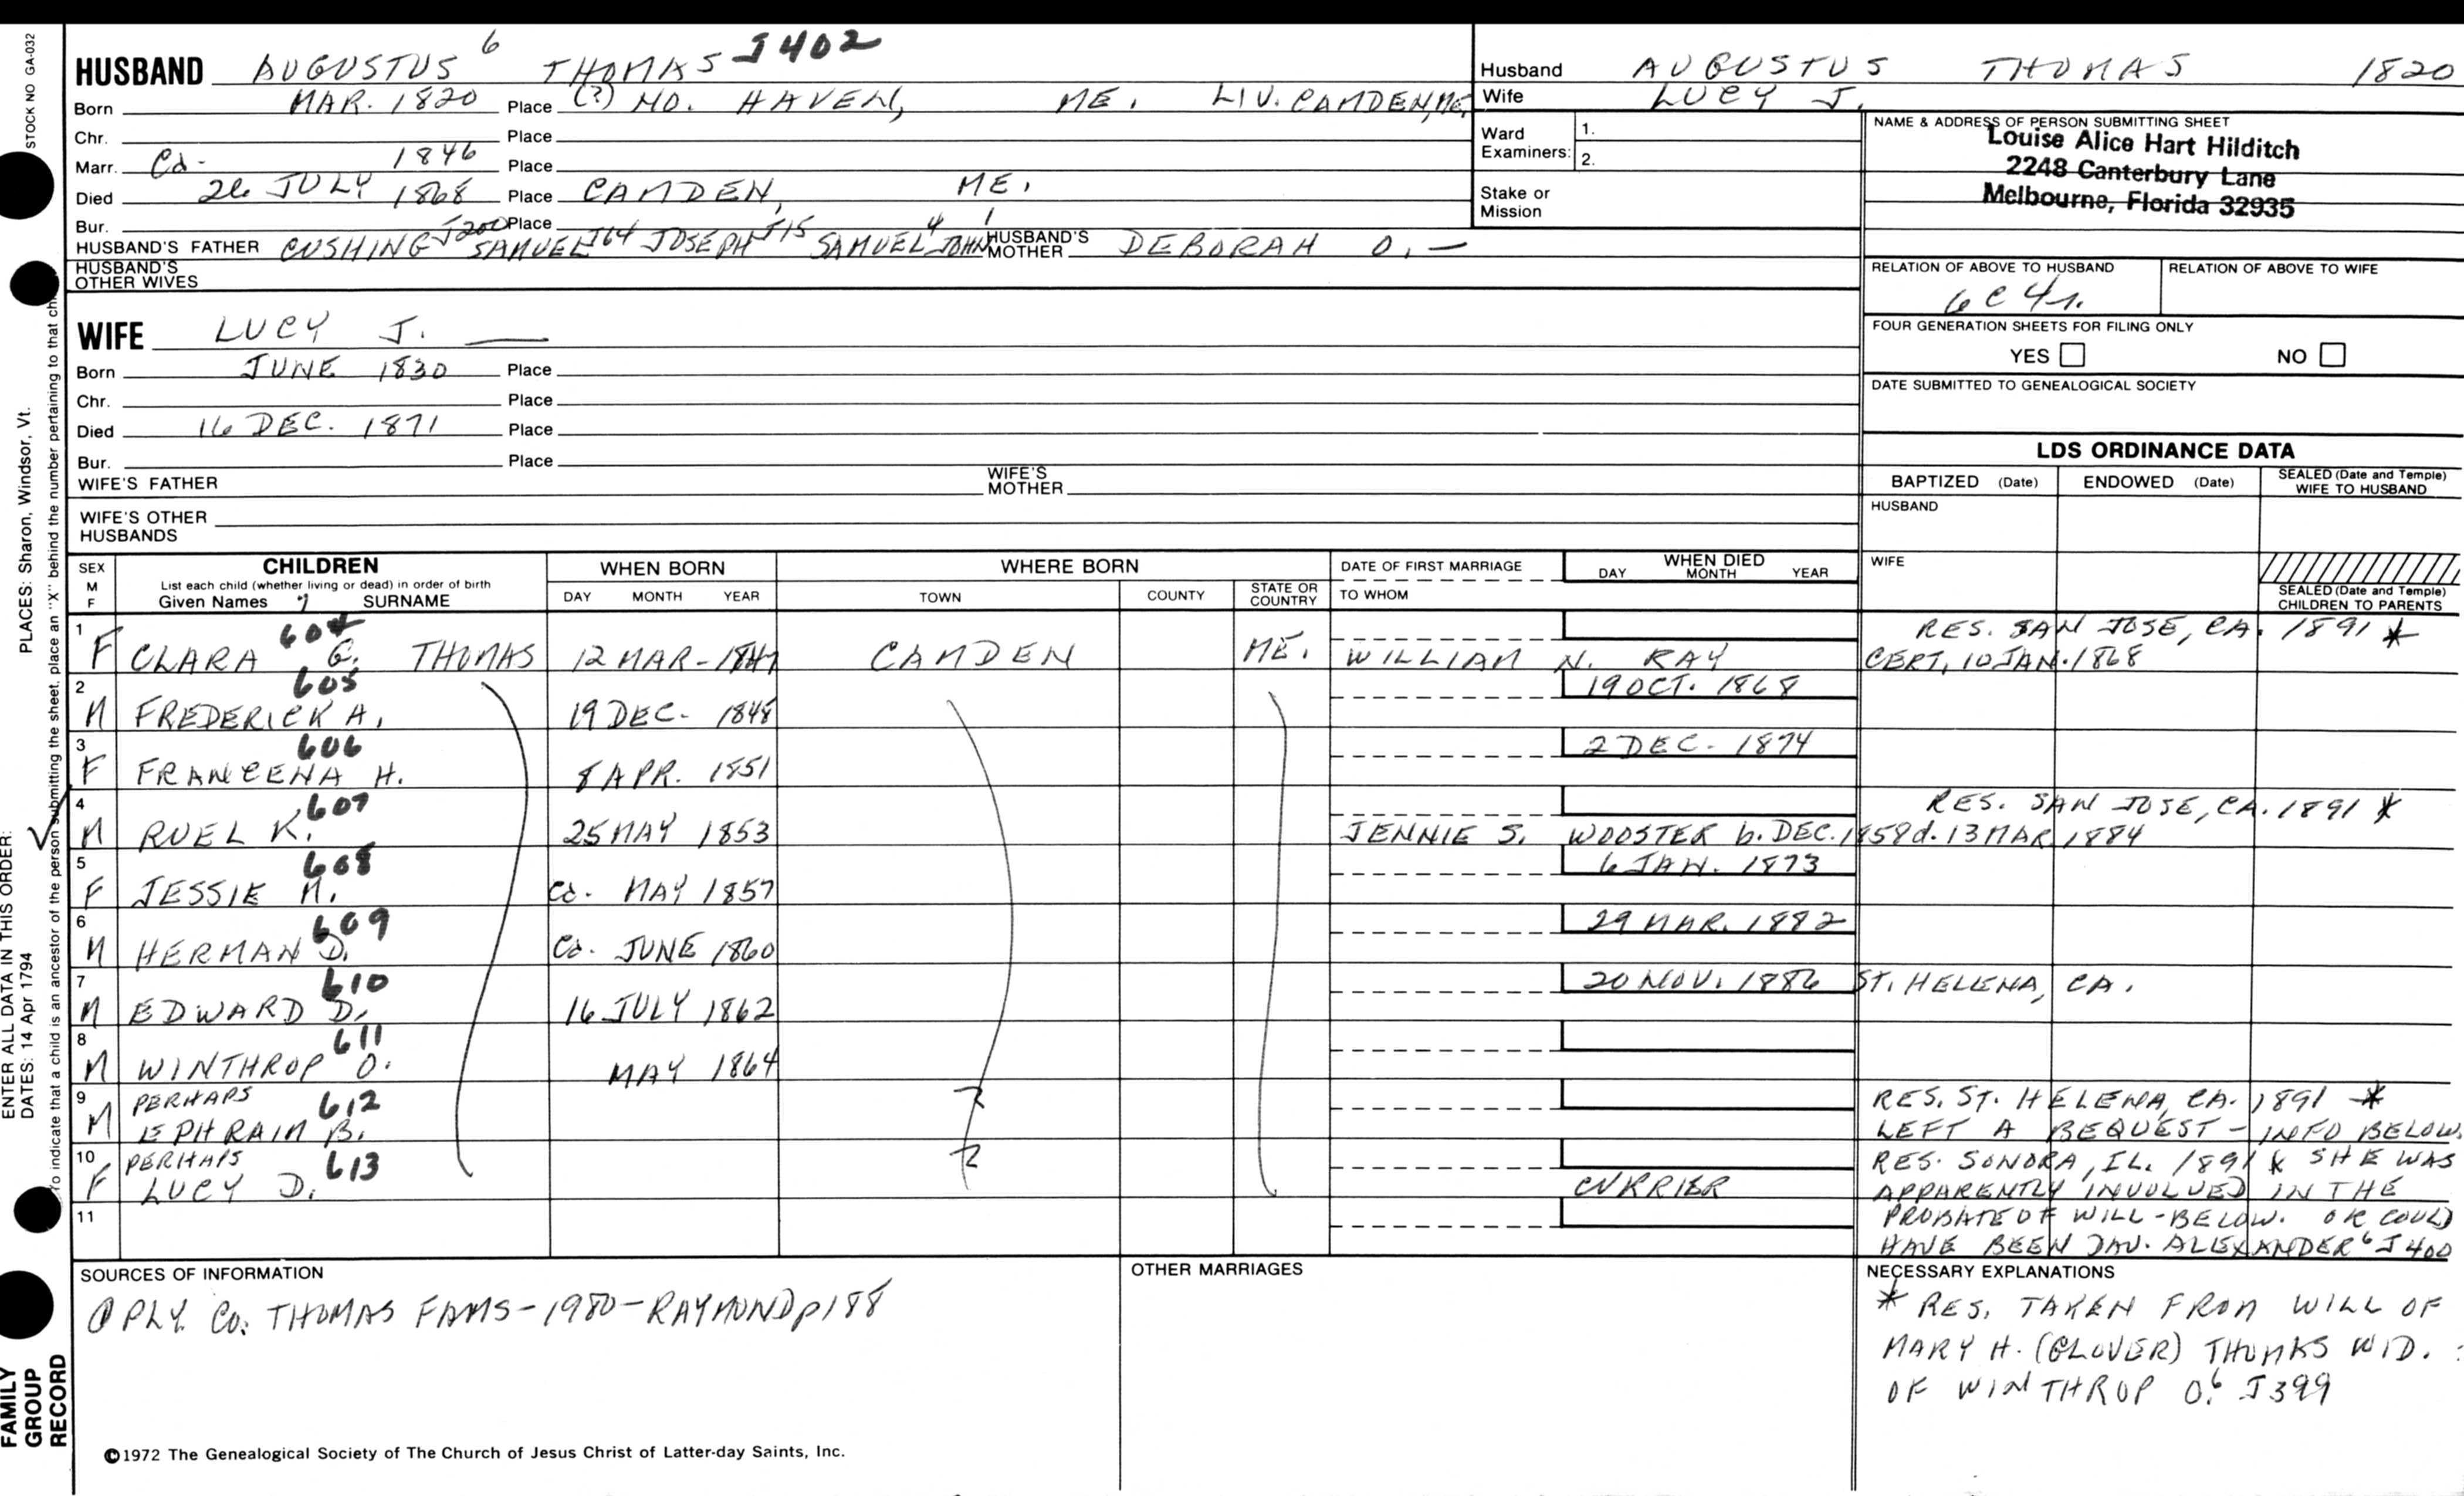 HUSBAND AUGUSTUS 6 THOMAS J402
Born MAR. 1820 Place (?) NO. HAVEN, ME. LIV. CAMDEN, ME.
Chr. Place
Marr. Ca. 1846 Place
Died 26 JULY 1868 Place CAMDEN, ME.
Bur. Place
HUSBAND'S FATHER CUSHING J200 SAMUEL J64 JOSEPH J15 SAMUEL 4 JOHN 1 HUSBAND'S MOTHER DEBORAH O. —
HUSBAND'S OTHER WIVES
WIFE LUCY J. —
Born JUNE 1830 Place
Chr. Place
Died 16 DEC. 1871 Place
Bur. Place
WIFE'S FATHER WIFE'S MOTHER
WIFE'S OTHER HUSBANDS
Husband AUGUSTUS THOMAS 1820
Wife LUCY J.
Ward Examiners: 1. 2.
Stake or Mission
NAME & ADDRESS OF PERSON SUBMITTING SHEET
Louise Alice Hart Hilditch
2248 Canterbury Lane
Melbourne, Florida 32935
RELATION OF ABOVE TO HUSBAND RELATION OF ABOVE TO WIFE
6C 4r.
FOUR GENERATION SHEETS FOR FILING ONLY
YES NO
DATE SUBMITTED TO GENEALOGICAL SOCIETY
LDS ORDINANCE DATA
BAPTIZED (Date) ENDOWED (Date) SEALED (Date and Temple) WIFE TO HUSBAND
HUSBAND
WIFE
SEALED (Date and Temple) CHILDREN TO PARENTS
SEX M F CHILDREN WHEN BORN WHERE BORN DATE OF FIRST MARRIAGE WHEN DIED
List each child (whether living or dead) in order of birth
Given Names 7 SURNAME DAY MONTH YEAR TOWN COUNTY STATE OR COUNTRY TO WHOM DAY MONTH YEAR
1 F CLARA G. 604 THOMAS 12 MAR-1847 CAMDEN ME. WILLIAM N. RAY RES. SAN JOSE, CA. 1891 *
CERT. 10 JAN. 1868
2 M FREDERICK A. 605 19 DEC. 1848 19 OCT. 1868
3 F FRANCENA H. 606 8 APR. 1851 2 DEC. 1874
4 M RUEL K. 607 25 MAY 1853 JENNIE S. WOOSTER b. DEC. 1858 d. 13 MAR. 1884 RES. SAN JOSE, CA. 1891 *
5 F JESSIE M. 608 Ca. MAY 1857 6 JAN. 1873
6 M HERMAN D. 609 Ca. JUNE 1860 29 MAR. 1882
7 M EDWARD D. 610 16 JULY 1862 20 NOV. 1886 ST. HELENA, CA.
8 M WINTHROP O. 611 MAY 1864
9 M PERHAPS EPHRAIM B. 612 ? RES. ST. HELENA, CA. 1891 *
LEFT A BEQUEST - INFO BELOW.
10 F PERHAPS LUCY D. 613 ? CURRIER RES. SONORA, IL. 1891 * SHE WAS
APPARENTLY INVOLVED IN THE
11 PROBATE OF WILL - BELOW. OR COULD
HAVE BEEN DAU. ALEXANDER 6 J400
SOURCES OF INFORMATION
PLY. CO. THOMAS FAMS-1980-RAYMOND p188
OTHER MARRIAGES
NECESSARY EXPLANATIONS
* RES. TAKEN FROM WILL OF
MARY H. (GLOVER) THOMAS WID.
OF WINTHROP O. 6 J399
©1972 The Genealogical Society of The Church of Jesus Christ of Latter-day Saints, Inc.
STOCK NO GA-032
PLACES: Sharon, Windsor, Vt.
To indicate that a child is an ancestor of the person submitting the sheet, place an "X" behind the number pertaining to that ch
ENTER ALL DATA IN THIS ORDER:
DATES: 14 Apr 1794
FAMILY GROUP RECORD